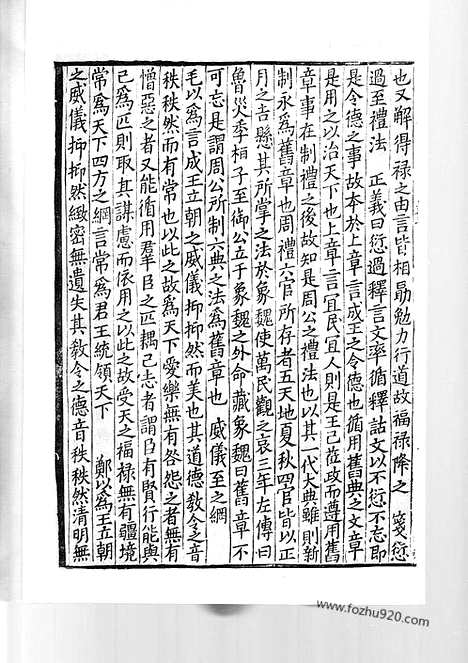 也又解得禄之由言皆相勗勉力行道故福禄降之　箋愆
過至禮法　正義曰愆過釋言文率循釋詁文以不愆不忘即
是令德之事故本於上章言成王之令德也循用舊典之文章
是用之以治天下也上章言宜民宜人則是王已莅政而遵用舊
章事在制禮之後故知是周公之禮法也以其一代大典雖則新
制永為舊章也周禮六官所存者五天地夏秋四官皆以正
月之吉懸其所掌之法於象魏使萬民觀之哀三年左傳曰
魯災季桓子至御公立于象魏之外命藏象魏曰舊章不
可忘是謂周公所制六典之法為舊章也　威儀至之綱
毛以為言成王立朝之威儀抑抑然而美也其道德教令之音
秩秩然而有常也以此之故為天下愛樂無有咎怨之者無有
憎惡之者又能循用羣臣之匹耦己志者謂臣有賢行能與
己為匹則取其謀慮而依用之以此之故受天之福禄無有疆境
常為天下四方之綱言常為君王統領天下　鄭以為王立朝
之威儀抑抑然緻密無遺失其教令之德音秩秩然清明無
www.fozhu920.com